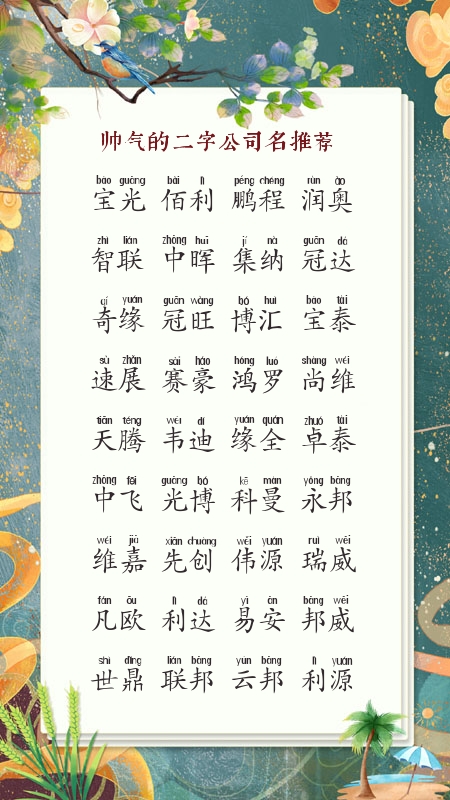 帅气的二字公司名推荐
bǎo guāng bǎi lì péng chéng rùn ào
宝光 佰利 鹏程 润奥
zhì lián zhōng huī jí nà guān dá
智联 中晖 集纳 冠达
qí yuán guān wàng bó huì bǎo tài
奇缘 冠旺 博汇 宝泰
sù zhǎn sài háo hóng luó shàng wéi
速展 赛豪 鸿罗 尚维
tiān téng wéi dí yuán quán zhuó tài
天腾 韦迪 缘全 卓泰
zhōng fēi guāng bó kē màn yǒng bāng
中飞 光博 科曼 永邦
wéi jiā xiān chuàng wěi yuán ruì wēi
维嘉 先创 伟源 瑞威
fán ōu lì dá yì ān bāng wēi
凡欧 利达 易安 邦威
shì dǐng lián bāng yún bāng lì yuán
世鼎 联邦 云邦 利源